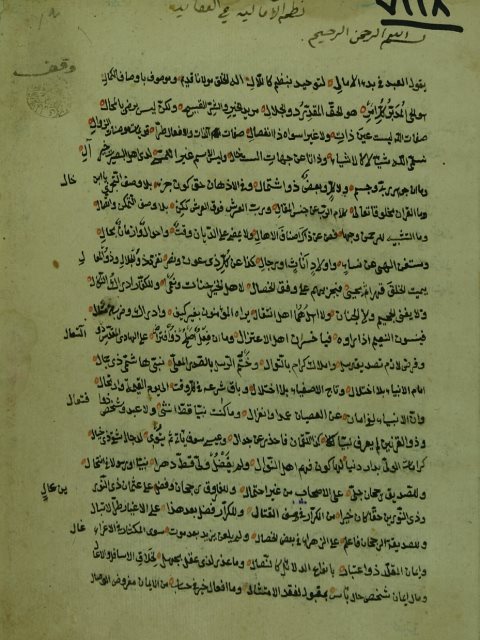 نظم الأمالية في العقائد
بسم الله الرحمن الرحيم
وقف
يقول العبد في بدء الامالي لتوحيد بنظم كاللآلي اله الخلق مولانا قديم وموصوف باوصاف الكمال
هو الحي المدبر كل امر هو الحق المقدر ذو الجلال مريد الخير والشر القبيح ولكن ليس يرضى بالمحال
صفات الله ليست عين ذات ولا غيرا سواه ذا انفصال صفات الذات والافعال طرا قديمات مصونات الزوال
نسمي الله شيئا لا كالاشياء وذاتا عن جهات الست خال وليس الاسم غيرا للمسمى لدى اهل البصيرة خير آل
وما ان جوهر ربي وجسم ولا كل وبعض ذو اشتمال وفي الاذهان حق كون جزء بلا وصف التجزي يا ابن خال
وما القرآن مخلوقا تعالى كلام الرب عن جنس المقال ورب العرش فوق العرش لكن بلا وصف التمكن واتصال
وما التشبيه للرحمن وجها فصن عن ذاك اصناف الاهالي ولا يمضي على الديان وقت واحوال وازمان بحال
ومستغن الهي عن نساء واولاد اناث او رجال كذا عن كل ذي عون ونصر تفرد ذو الجلال وذو المعالي
يميت الخلق قهرا ثم يحيي فيجزيهم على وفق الخصال لاهل الخير جنات ونعمى وللكفار ادراك النكال
ولا يفنى الجحيم ولا الجنان ولا اهلوهما اهل انتقال يراه المؤمنون بغير كيف وادراك وضرب من مثال
فينسون النعيم اذا رأوه فيا خسران اهل الاعتزال وما ان فعل اصلح ذو افتراض على الهادي المقدس ذي التعال
وفرض لازم تصديق رسل واملاك كرام بالنوال وختم الرسل بالصدر المعلى نبي هاشمي ذي جمال
امام الانبياء بلا اختلاف وتاج الاصفياء بلا اختلال وباق شرعه في كل وقت الى يوم القيمة وارتحال
وان الانبياء لفي امان عن العصيان عمدا وانعزال وما كانت نبيا قط انثى ولا عبد وشخص ذو افتعال
وذو القرنين لم يعرف نبيا كذا لقمان فاحذر عن جدال وعيسى سوف يأتي ثم يتوي لدجال شقي ذي خبال
كرامات الولي بدار دنيا لها كون فهم اهل النوال ولم يفضل ولي قط دهرا نبيا او رسولا في انتحال
وللصديق رجحان جلي على الاصحاب من غير احتمال وللفاروق رجحان وفضل على عثمان ذي النورين عال
وذو النورين حقا كان خيرا من الكرار في صف القتال وللكرار فضل بعد هذا على الاغيار طرا لا تبال
وللصديقة الرجحان فاعلم على الزهراء في بعض الخصال ولم يلعن يزيدا بعد موت سوى المكثار في الاغراء غال
وايمان المقلد ذو اعتبار بانواع الدلائل كالنصال وما عذر لذي عقل بجهل بخلاق الاسافل والاعالي
وما ايمان شخص حال يأس بمقبول لفقد الامتثال وما افعال خير في حساب من الايمان مفروض الوصال